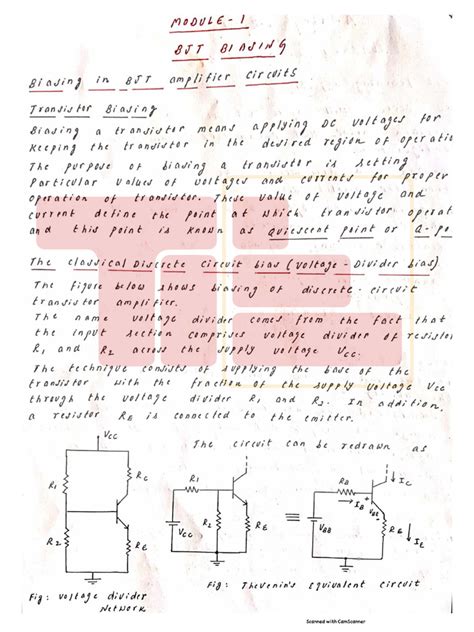 MODULE - 1
BJT BIASING
Biasing in BJT amplifier circuits
Transistor Biasing
Biasing a transistor means applying DC voltages for
keeping the transistor in the desired region of operatio
The purpose of biasing a transistor is setting
Particular values of voltages and currents for proper
operation of transistor. These value of voltage and
current define the point at which transistor operat
and this point is known as quiescent point or Q-po
The classical Discrete circuit bias (voltage-Divider bias)
The figure below shows biasing of discrete-circuit
transistor amplifier.
The name voltage divider comes from the fact that
the input section comprises voltage divider of resistor
R1 and R2 across the supply voltage VCC.
The technique consists of supplying the base of the
transistor with the fraction of the supply voltage VCC
through the voltage divider R1 and R2. In addition
a resistor RE is connected to the emitter.
The circuit can be redrawn as
VCC
R1
RC
R2
RE
Fig: voltage divider
Network
R1
VCC
R2
RE
≡
RB
IC
IB
VBE
VBB
RE
IE
Fig: Thevenin's Equivalent circuit
Scanned with CamScanner